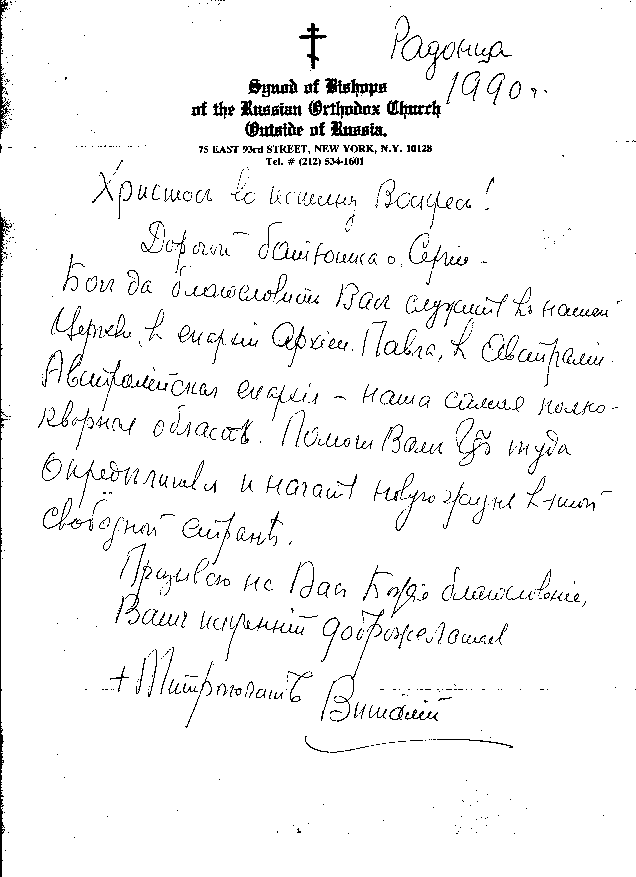 Радоница
1990 г.
Synod of Bishops
of the Russian Orthodox Church
Outside of Russia.
75 EAST 93rd STREET, NEW YORK, N.Y. 10128
Tel. # (212) 534-1601
Христос во истину Воскресъ!
Дорогой батюшка о. Сергiй
Богъ да благословитъ Васъ служить въ нашей
Церкви, въ епархiи Архiеп. Павла, въ Австралiи.
Австралiйская епархiя – наша самая полно-
кворная область. Помоги Вамъ туда
опредѣлиться и начать новую жизнь въ этой
свободной странѣ.
Призываю на Васъ Божiе благословенiе,
Вашъ искреннiй доброжелатель
+ Митрополитъ Виталiй